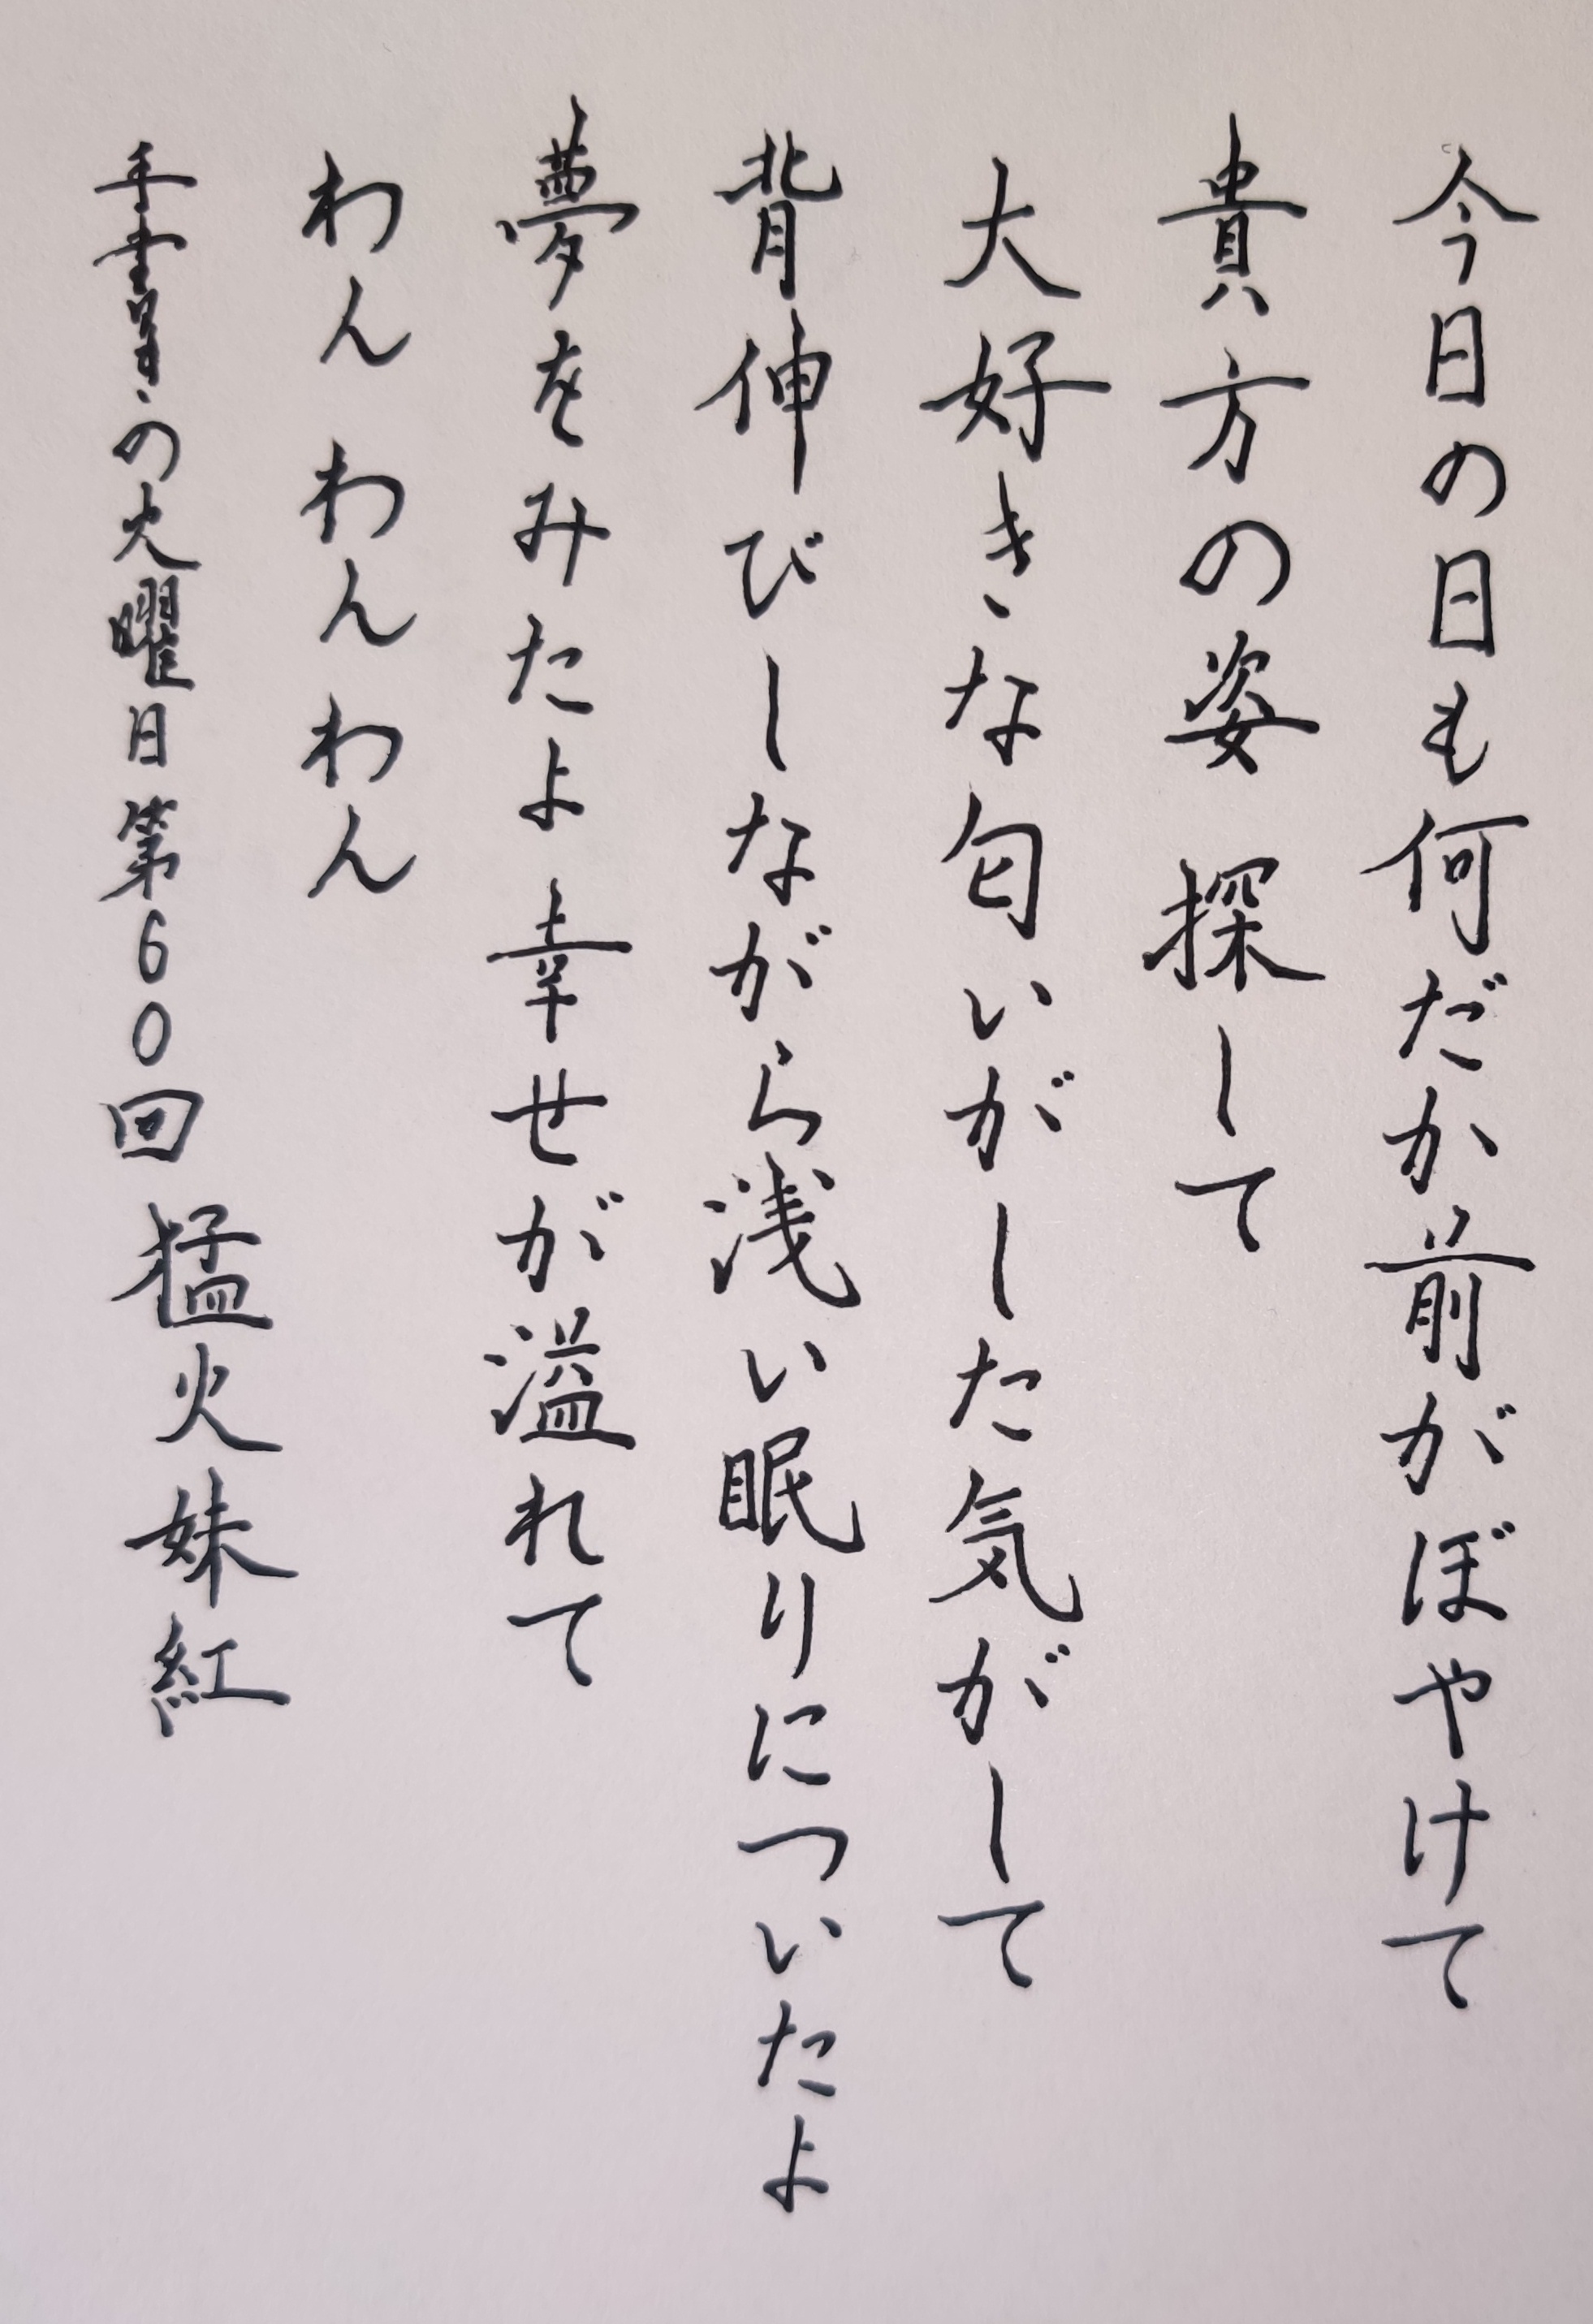 今日の日も何だか前がぼやけて
貴方の姿 探して
大好きな匂いがした気がして
背伸びしながら浅い眠りについたよ
夢をみたよ 幸せが溢れて
わん わん わん
手書きの火曜日 第60回 猛火妹紅